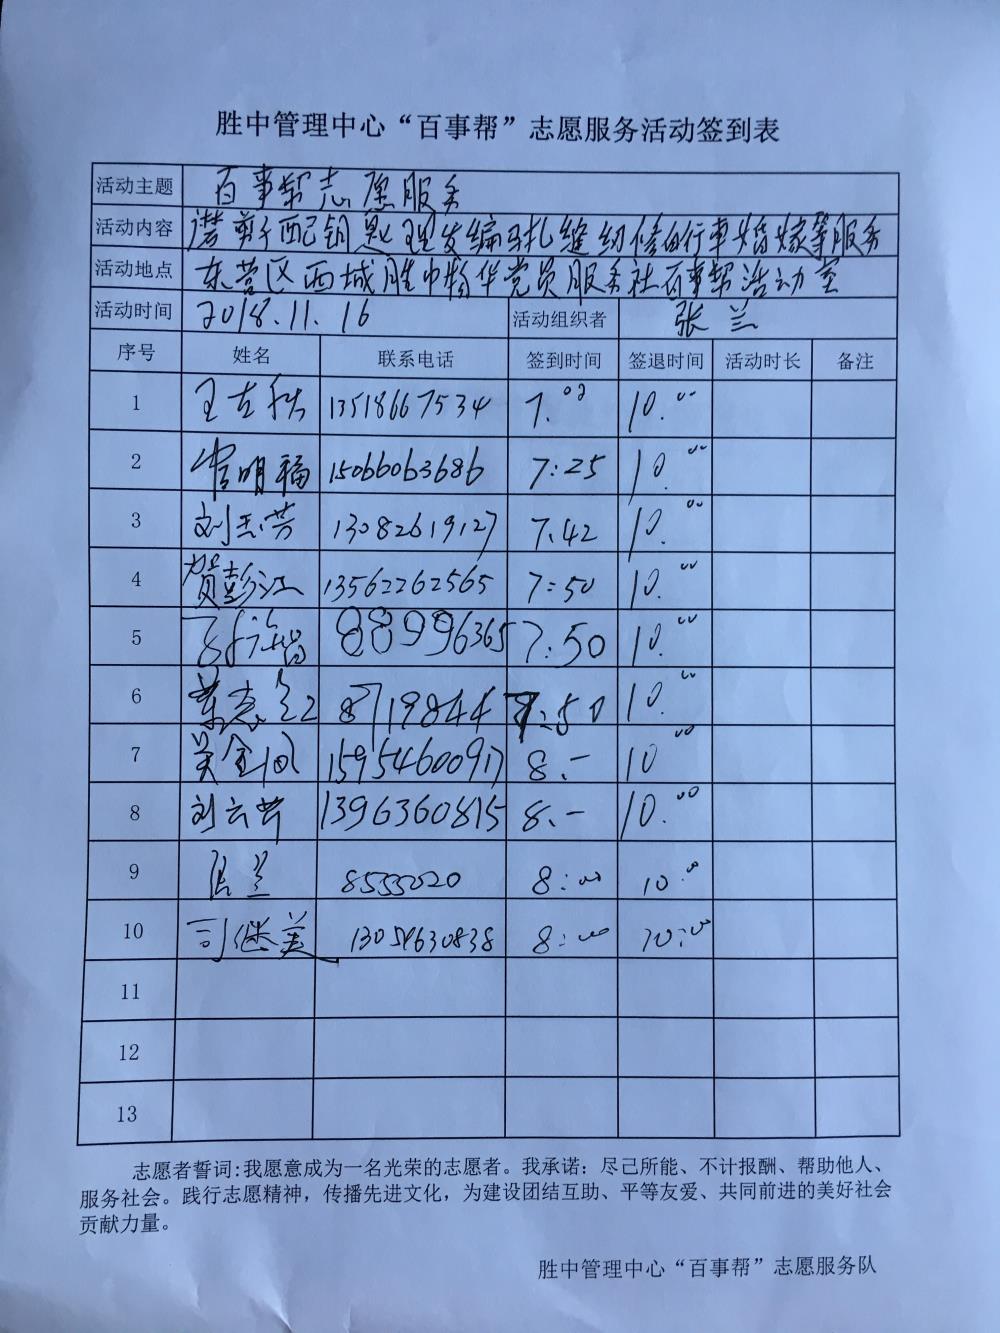 胜中管理中心“百事帮”志愿服务活动签到表
活动主题 百事帮志愿服务
活动内容 剪子配钥匙理发编织扎缝纫修自行車婚嫁等服务
活动地点 东营区西城胜中物华党员服务社百事帮活动室
活动时间 2018.11.16 活动组织者 张兰
序号 姓名 联系电话 签到时间 签退时间 活动时长 备注
1 王左秋 13518667534 7.00 10.00
2 常明福 15066063686 7:25 10.00
3 刘志芳 13082619127 7.42 10.00
4 贺彭江 13562262565 7:50 10.00
5 88996365 7:50 10.00
6 8719844 7:50 10.00
7 吴金凤 15954600917 8.- 10 00
8 刘云芳 1396360815 8.- 10.00
9 兰 8555020 8:00 10.00
10 司继美 13054630838 8:00 10:00
11
12
13
志愿者誓词:我愿意成为一名光荣的志愿者。我承诺：尽己所能、不计报酬、帮助他人、
服务社会。践行志愿精神，传播先进文化，为建设团结互助、平等友爱、共同前进的美好社会
贡献力量。
胜中管理中心“百事帮”志愿服务队